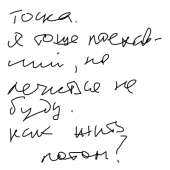 тоска.
я тоже поехав-
ший, но
лечиться не
буду.
как жить
потом?